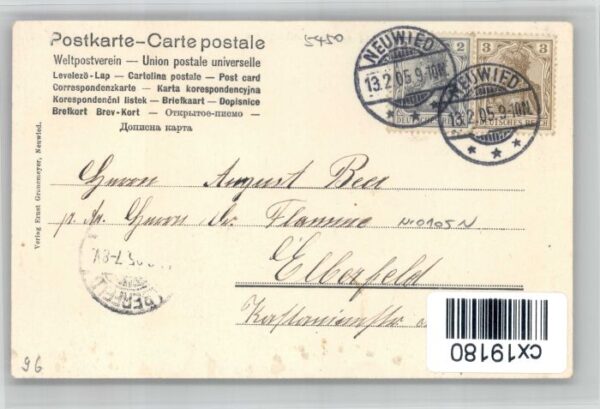 Postkarte–Carte postale
Weltpostverein — Union postale universelle
Levelező-Lap — Cartolina postale — Post card
Correspondenzkarte — Karta korespondencyjna
Korespondenční listek — Briefkaart — Dopisnice
Brefkort Brev-Kort — Открытое-письмо —
Дописна карта
5450
NEUWIED
13.2.05.9-10N.
2
DEUTSCHES
3
DEUTSCHES REICH
NEUWIED
13.2.05.9-10N.
Verlag Ernst Gronemeyer, Neuwied.
Herrn August Beer
p. Ad. Herrn Dr. Flamine
N.0105N
Elberfeld
Kastanienstr
05.7-8V
ERFELD
96
cx19180